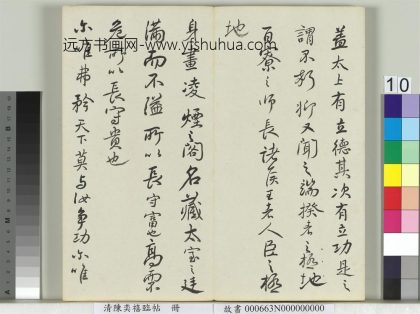 盖太上有立德其次有立功是之
謂不朽抑又聞之端揆者之極地
百寮之師長諸侯王者人臣之極
地
身畫凌煙之閣名藏太室之廷
滿而不溢所以長守富也高而不
危所以長守貴也
尔唯弗矜天下莫与汝争功尔唯
远方书画网-www.yishuhua.com
10
清陳奕禧臨帖 冊
故書 000663N000000000